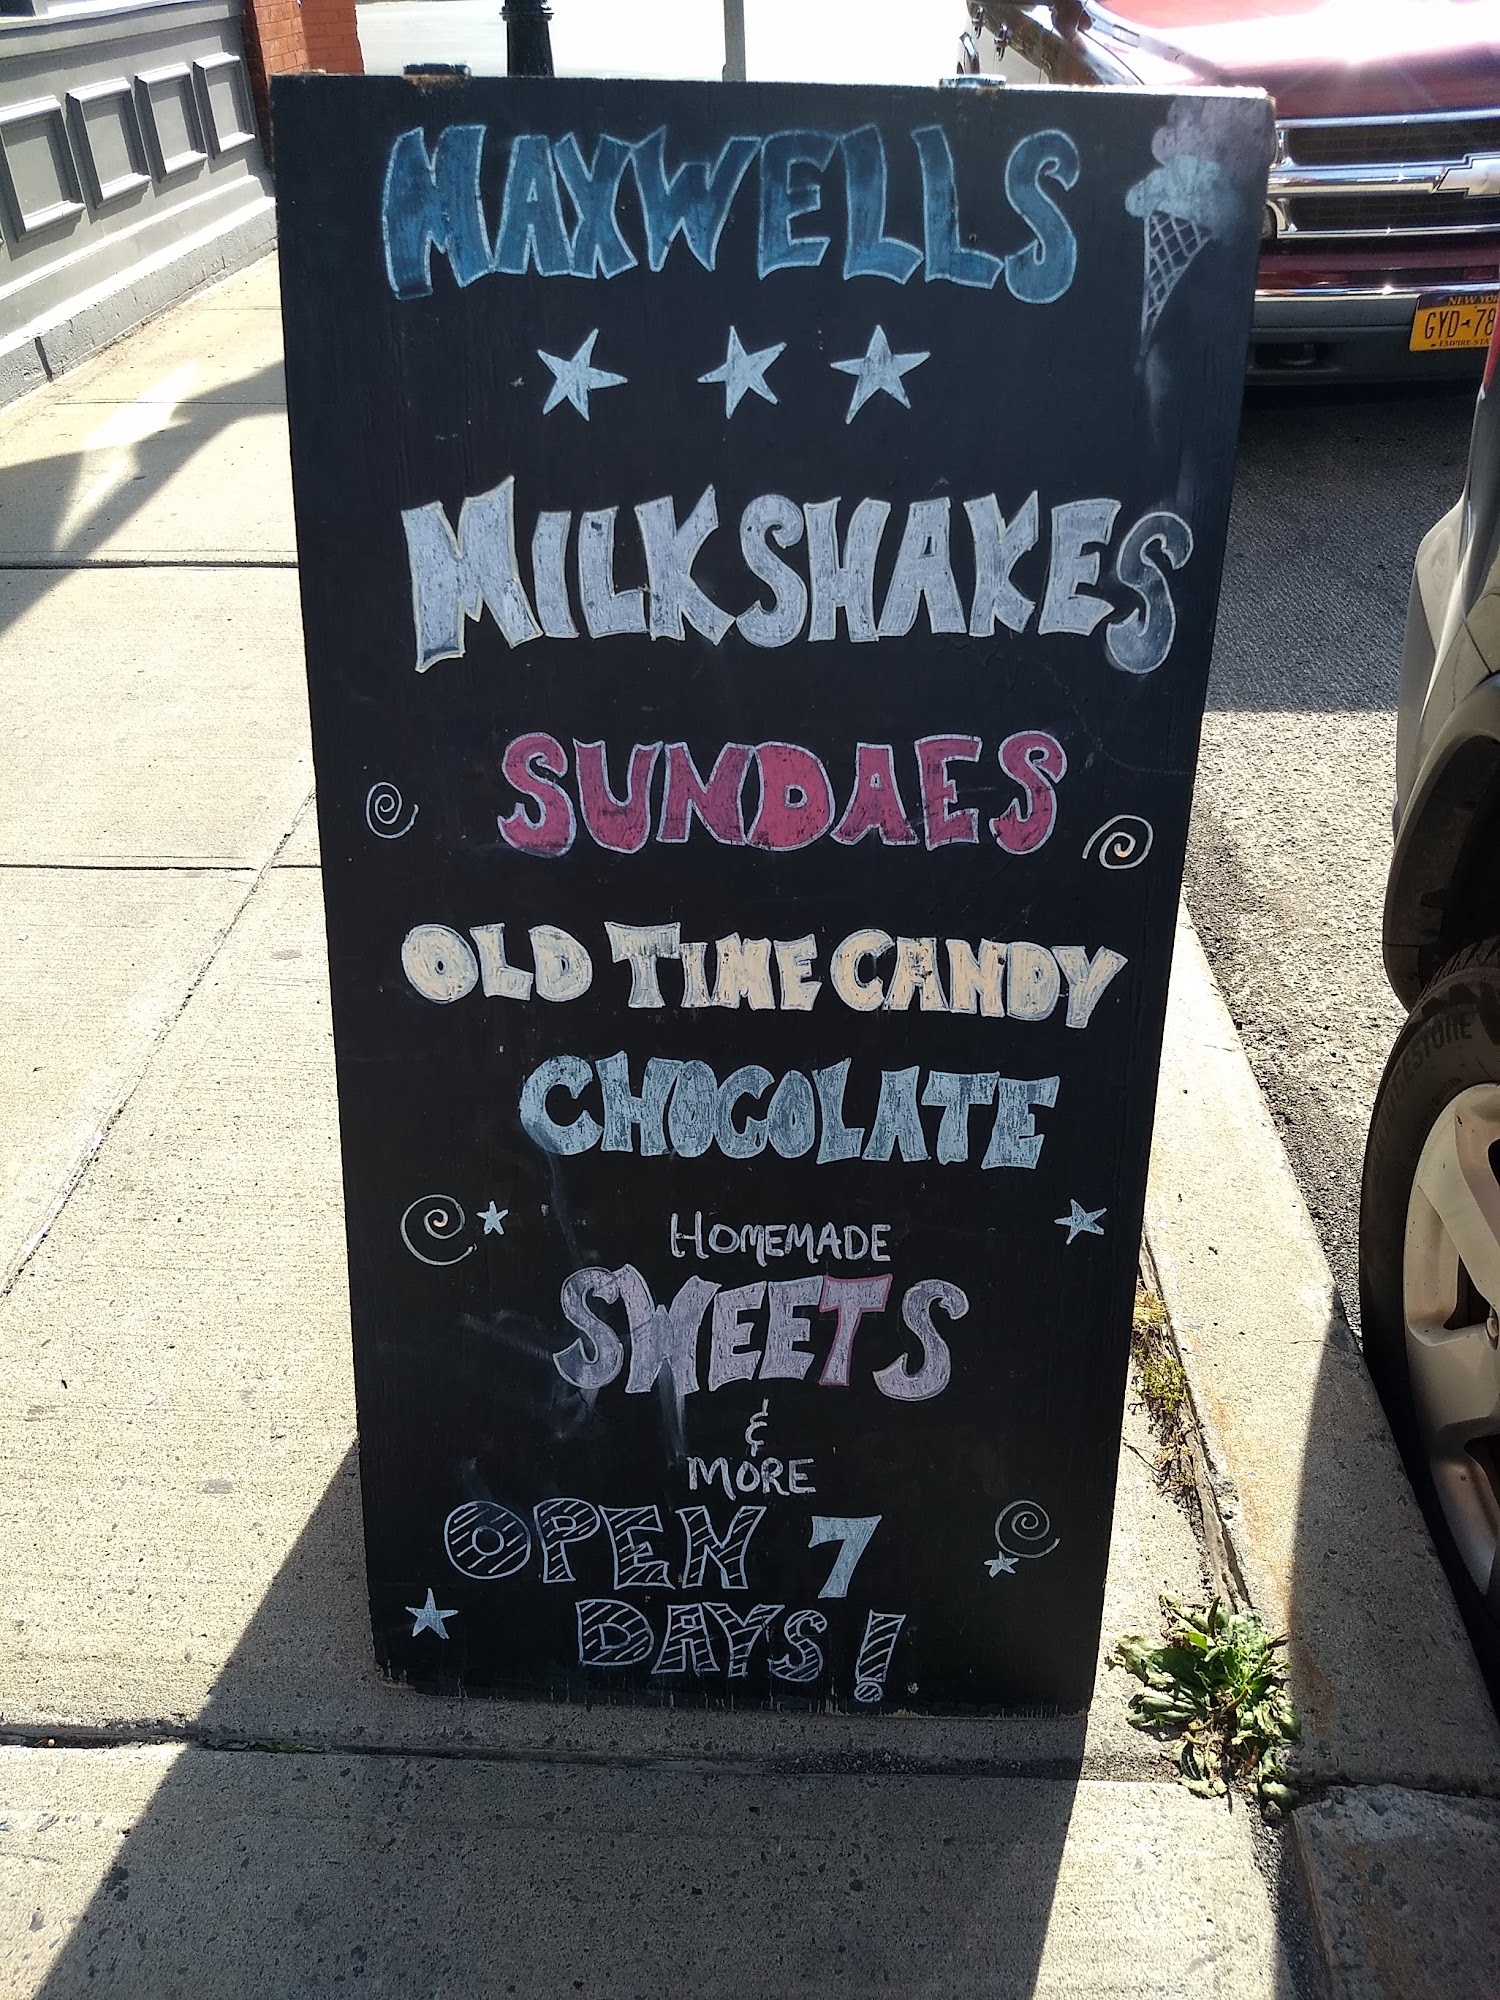 MAXWELLS
MILKSHAKES
SUNDAES
OLD TIME CANDY
CHOCOLATE
HOMEMADE
SWEETS
&
MORE
OPEN 7
DAYS!
NEW YO
GYD-78
EMPIRE STA